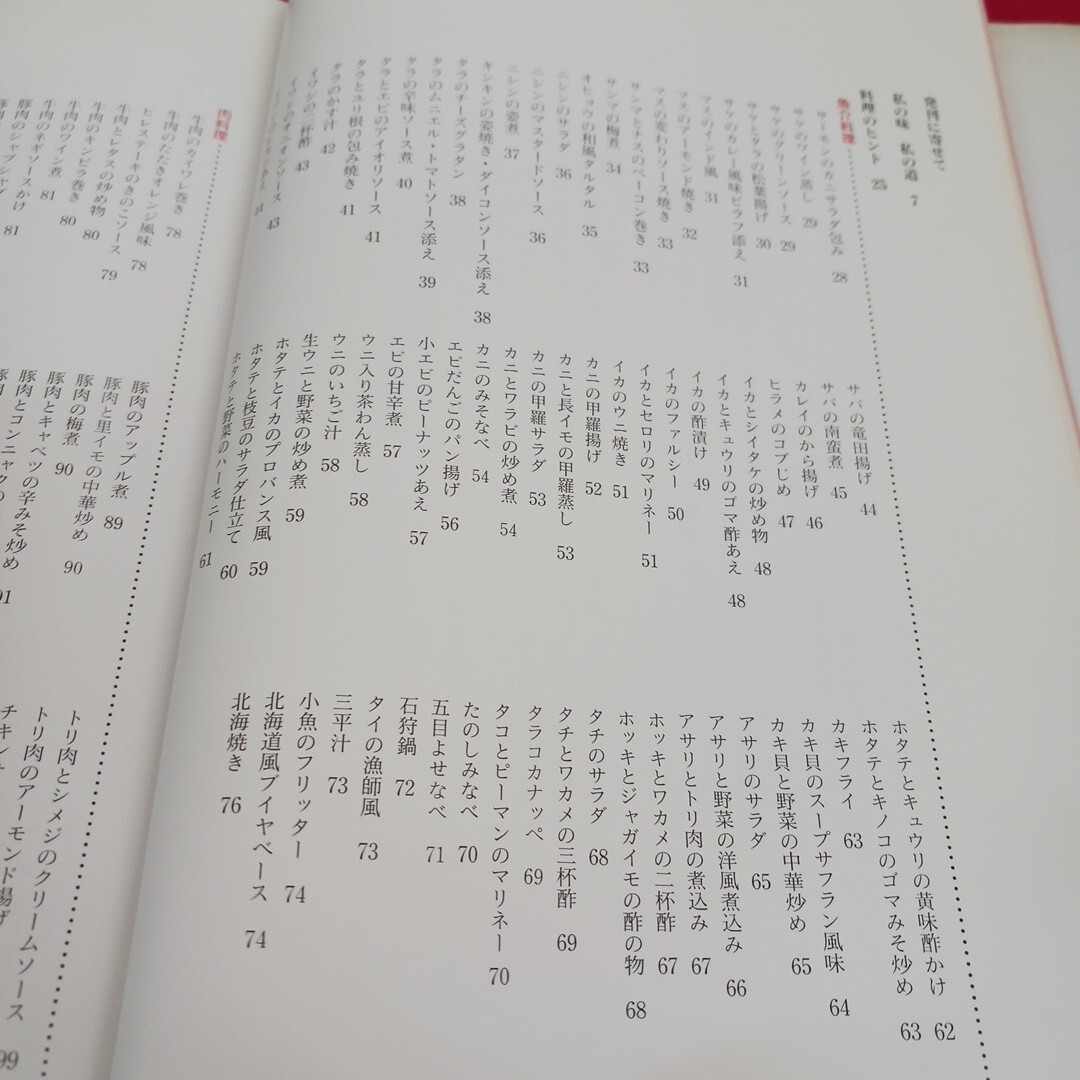 発刊に寄せて
私の味 私の道 7
料理のヒント 25
魚介料理
サーモンのカニサラダ包み 28
サケのワイン蒸し 29
サケのグリーンソース 29
サケとタラの松葉揚げ 30
サケのカレー風味ピラフ添え 31
マスのインド風 31
マスのアーモンド焼き 32
マスの変わりソース焼き 33
サンマとナスのベーコン巻き 33
サンマの梅煮 34
オヒョウの和風タルタル 35
ニシンのサラダ 36
ニシンのマスタードソース 36
ニシンの姿煮 37
キンキンの姿焼き・ダイコンソース添え 38
タラのチーズグラタン 38
タラのムニエル・トマトソース添え 39
タラの辛味ソース煮 40
タラとエビのアイオリソース 41
タラとユリ根の包み焼き 41
タラのかす汁 42
イワシの二杯酢 43
イワシのオニオンソース 43
サバの竜田揚げ 44
サバの南蛮煮 45
カレイのから揚げ 46
ヒラメのコブじめ 47
イカとシイタケの炒め物 48
イカとキュウリのゴマ酢あえ 48
イカの酢漬け 49
イカのファルシー 50
イカとセロリのマリネー 51
イカのウニ焼き 51
カニの甲羅揚げ 52
カニと長イモの甲羅蒸し 53
カニの甲羅サラダ 53
カニとワラビの炒め煮 54
カニのみそなべ 54
エビだんごのパン揚げ 56
小エビのピーナッツあえ 57
エビの甘辛煮 57
ウニ入り茶わん蒸し 58
ウニのいちご汁 58
生ウニと野菜の炒め煮 59
ホタテとイカのプロバンス風 59
ホタテと枝豆のサラダ仕立て 60
ホタテと野菜のハーモニー 61
ホタテとキュウリの黄味酢かけ 62
ホタテとキノコのゴマみそ炒め 63
カキフライ 63
カキ貝のスープサフラン風味 64
カキ貝と野菜の中華炒め 65
アサリのサラダ 65
アサリと野菜の洋風煮込み 66
アサリとトリ肉の煮込み 67
ホッキとワカメの二杯酢 67
ホッキとジャガイモの酢の物 68
タチのサラダ 68
タチとワカメの三杯酢 69
タラコカナッペ 69
タコとピーマンのマリネー 70
たのしみなべ 70
五目よせなべ 71
石狩鍋 72
タイの漁師風 73
三平汁 73
小魚のフリッター 74
北海道風ブイヤベース 74
北海焼き 76
肉料理
牛肉のカイワレ巻き 78
牛肉のたたきオレンジ風味 78
ヒレステーキのきのこソース 79
牛肉とレタスの炒め物 80
牛肉のキンピラ巻き 80
牛肉のワイン煮 81
豚肉のネギソースかけ 81
豚肉のシャブシャブ
豚肉のアップル煮 89
豚肉と里イモの中華炒め 90
豚肉の梅煮 90
豚肉とキャベツの辛みそ炒め 91
豚肉とコンニャクの
トリ肉とシメジのクリームソース 99
トリ肉のアーモンド揚げ